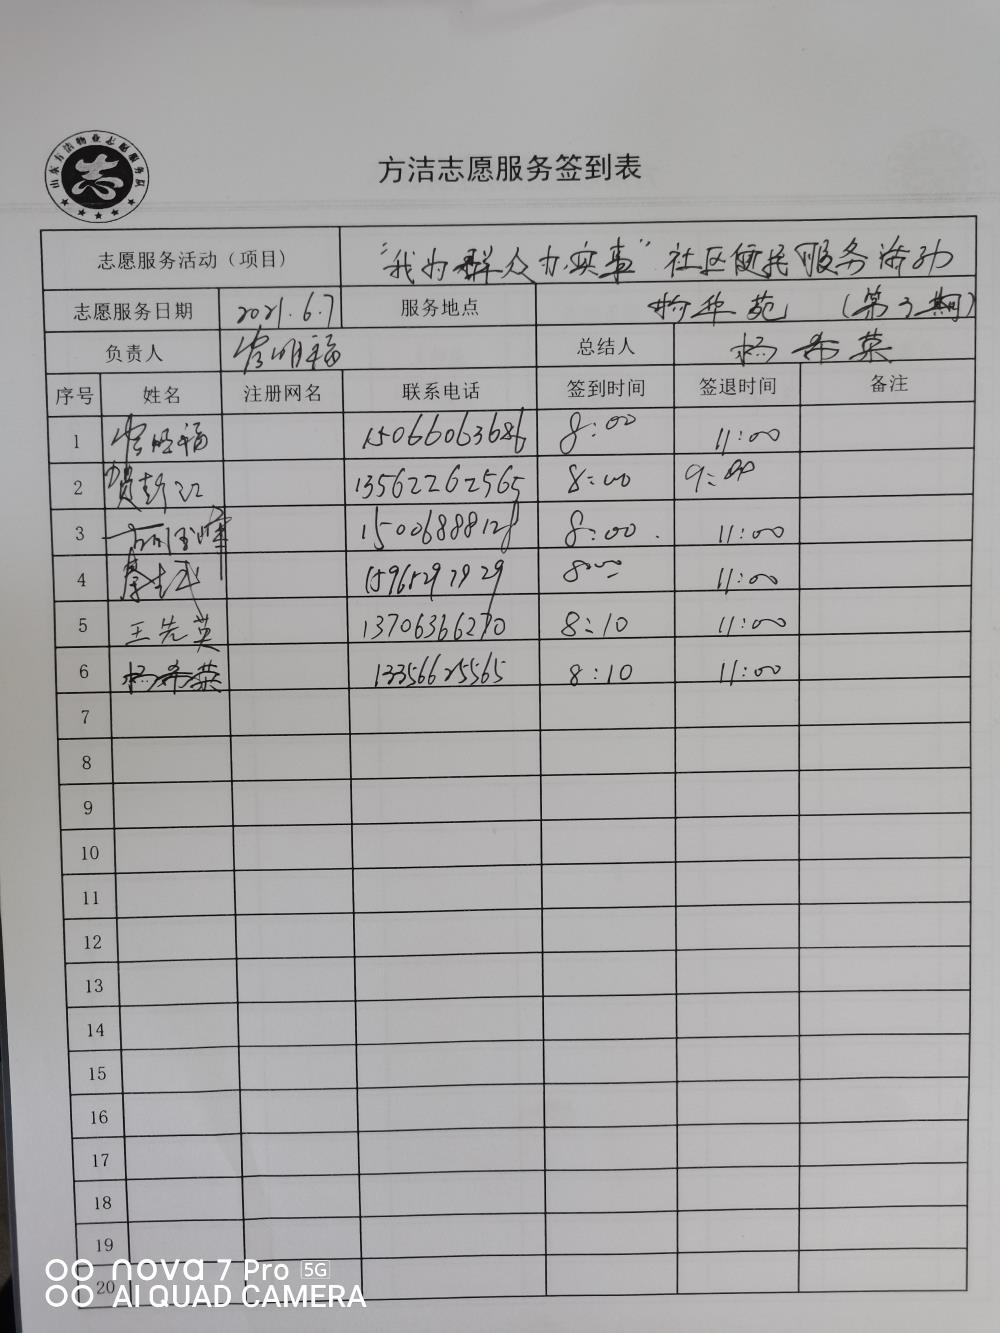 山东方洁物业志愿服务队
志
方洁志愿服务签到表
志愿服务活动（项目） "我为群众办实事"社区便民服务活动
志愿服务日期 2021.6.7 服务地点 华苑（第3期）
负责人 明福 总结人 杨希荣
序号 姓名 注册网名 联系电话 签到时间 签退时间 备注
1 明福 15066063686 8:00 11:00
2 贺彭江 13562262565 8:00 9:00
3 15006888128 8:00 11:00
4 8:00 11:00
5 王先英 13706366270 8:10 11:00
6 杨希荣 13356625565 8:10 11:00
7
8
9
10
11
12
13
14
15
16
17
18
19
20
nova 7 Pro 5G
AI QUAD CAMERA